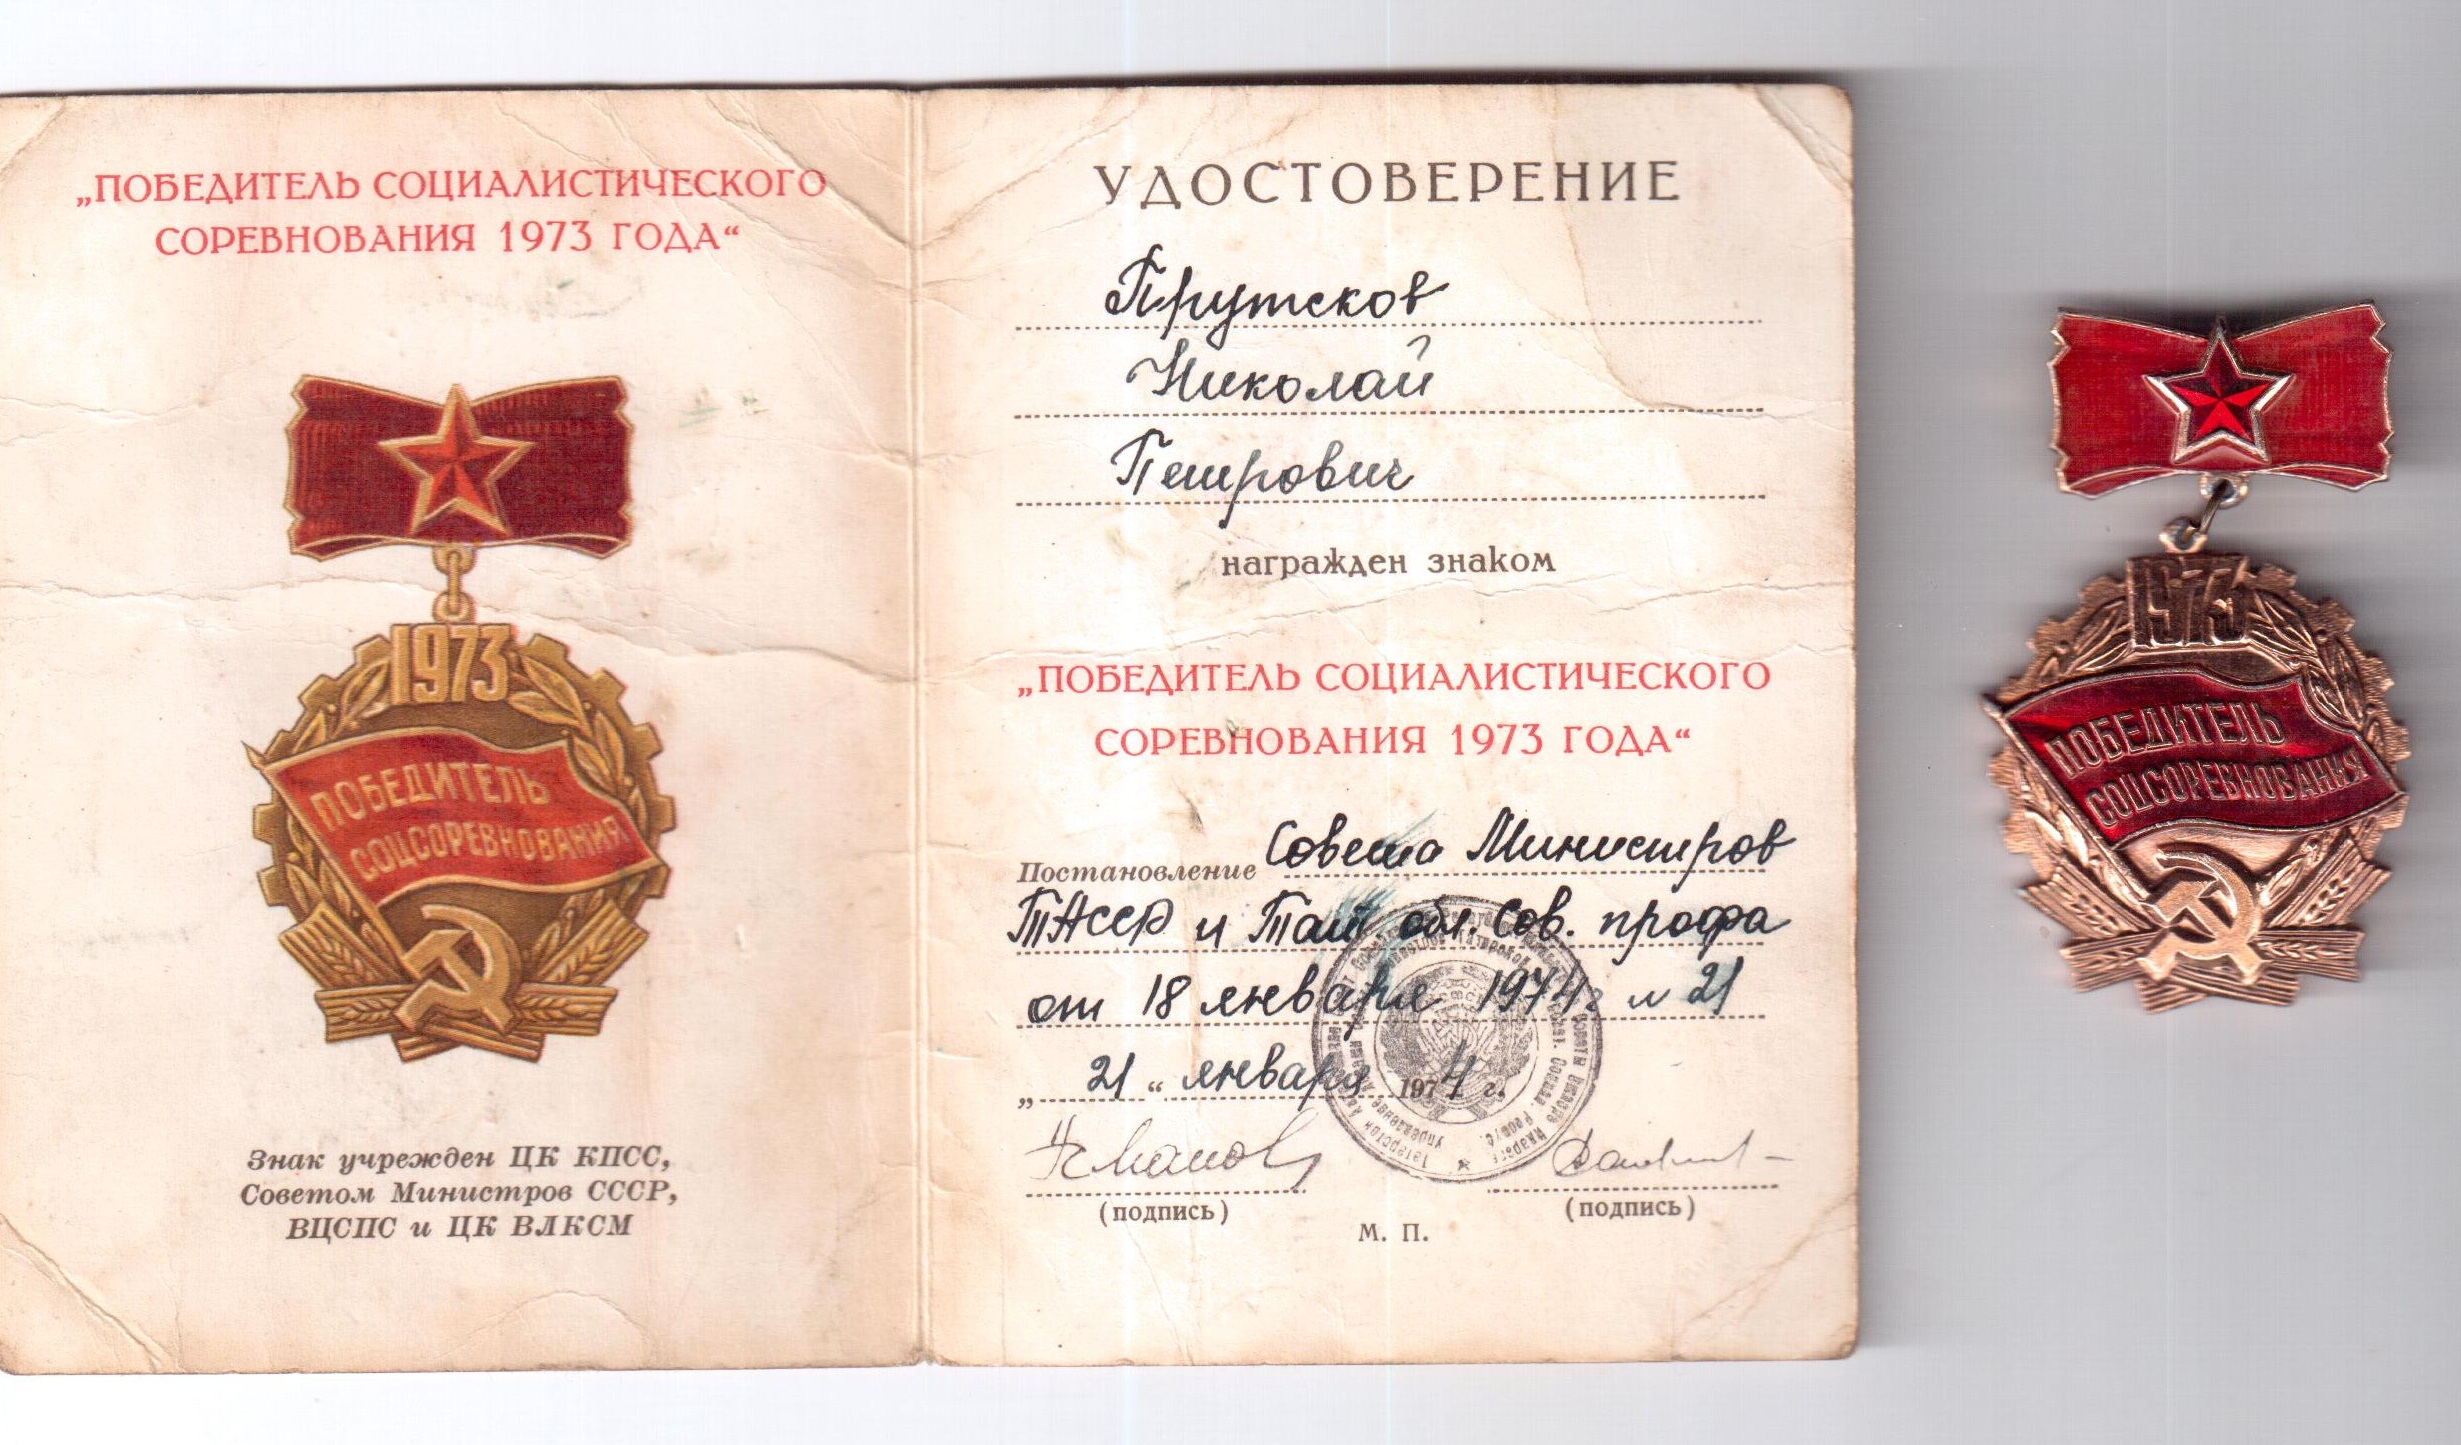 „ПОБЕДИТЕЛЬ СОЦИАЛИСТИЧЕСКОГО
СОРЕВНОВАНИЯ 1973 ГОДА“
1973
ПОБЕДИТЕЛЬ
СОЦСОРЕВНОВАНИЯ
Знак учрежден ЦК КПСС,
Советом Министров СССР,
ВЦСПС и ЦК ВЛКСМ
УДОСТОВЕРЕНИЕ
Прутсков
Николай
Петрович
награжден знаком
„ПОБЕДИТЕЛЬ СОЦИАЛИСТИЧЕСКОГО
СОРЕВНОВАНИЯ 1973 ГОДА“
Постановление Совета Министров
ТАССР и Тат обл. Сов. профа
от 18 января 1974 г № 21
„21“ января 1974 г.
(подпись) (подпись)
М. П.
1973
ПОБЕДИТЕЛЬ
СОЦСОРЕВНОВАНИЯ